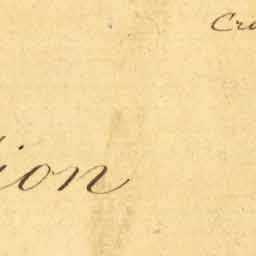 Cro
ion